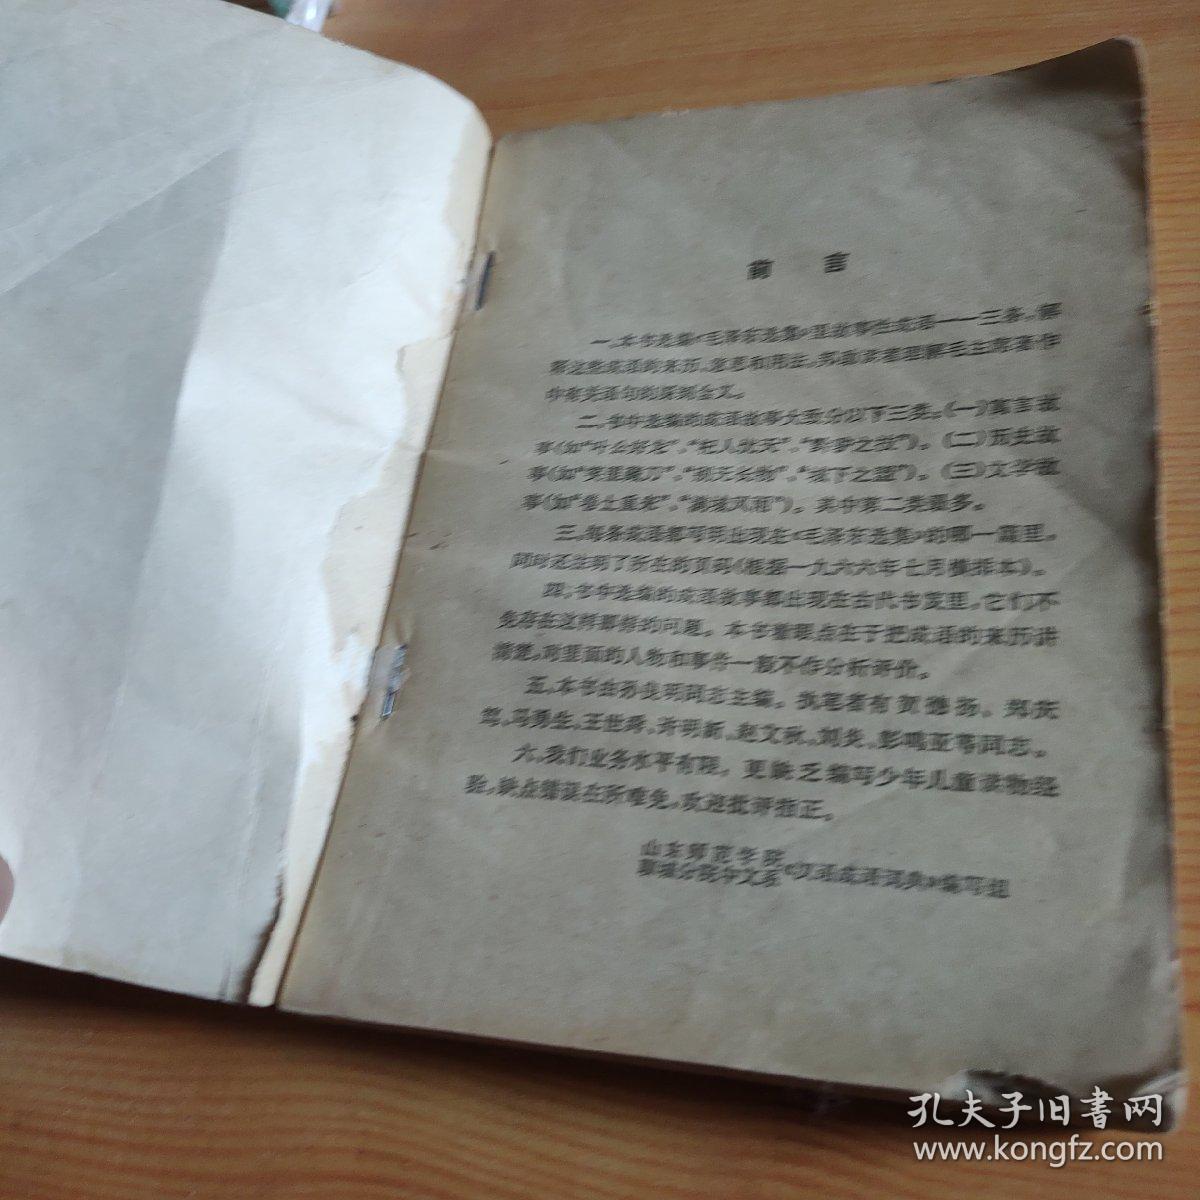 前 言
一、本书选编《毛泽东选集》里故事性成语一一三条，解
释这些成语的来历、意思和用法，帮助读者理解毛主席著作
中有关语句的深刻含义。
二、书中选编的成语故事大致分以下三类。（一）寓言故
事（如“叶公好龙”、“杞人忧天”、“黔驴之技”）。（二）历史故
事（如“笑里藏刀”、“别无长物”、“城下之盟”）。（三）文学故
事（如“卷土重来”、“满城风雨”）。其中第二类最多。
三、每条成语都写明出现在《毛泽东选集》的哪一篇里，
同时还注明了所在的页码（根据一九六六年七月横排本）。
四、书中选编的成语故事都出现在古代书籍里，它们不
免存在这样那样的问题。本书着眼点在于把成语的来历讲
清楚，对里面的人物和事件一般不作分析评价。
五、本书由孙良明同志主编。执笔者有贺德扬、郑庆
笃、冯勇生、王世舜、许明新、赵文秋、刘炎、彭鸣亚等同志。
六、我们业务水平有限，更缺乏编写少年儿童读物经
验，缺点错误在所难免，欢迎批评指正。
山东师范学院
聊城分院中文系《汉语成语词典》编写组
孔夫子旧書网
www.kongfz.com